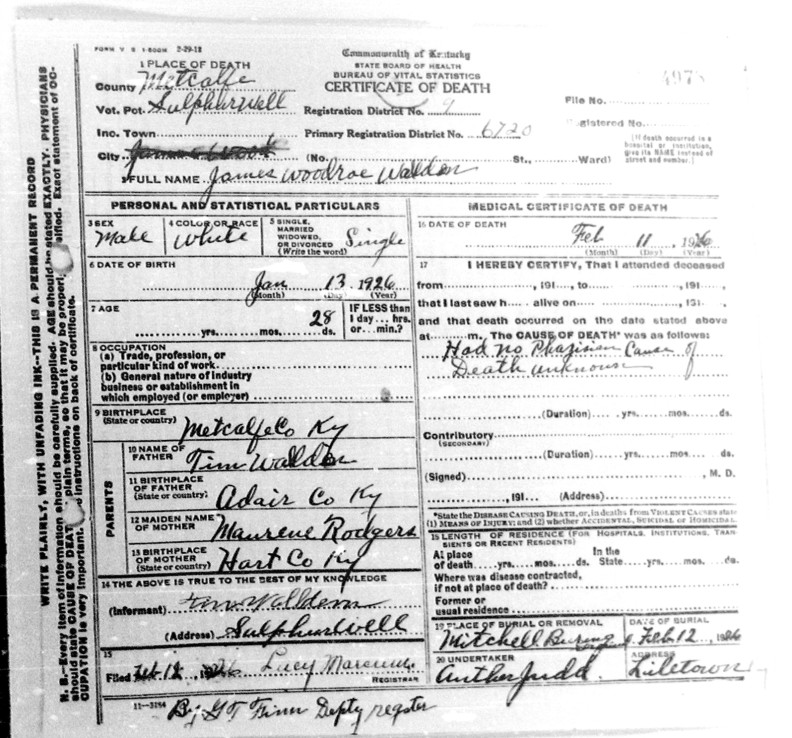 FORM V. S. 1-500M 2-29-18
Commonwealth of Kentucky
STATE BOARD OF HEALTH
BUREAU OF VITAL STATISTICS
CERTIFICATE OF DEATH
1 PLACE OF DEATH
County Metcalfe
Vot. Pct. Sulphur Well
Inc. Town
City
Registration District No. 9
Primary Registration District No. 6720
File No. 4973
Registered No.
(No. St., Ward)
(If death occurred in a hospital or institution, give its NAME instead of street and number.)
2 FULL NAME James Woodroe Walden
PERSONAL AND STATISTICAL PARTICULARS
3 SEX Male
4 COLOR OR RACE White
5 SINGLE, MARRIED WIDOWED, OR DIVORCED (Write the word) Single
6 DATE OF BIRTH
Jan 13 1926
(Month) (Day) (Year)
7 AGE
yrs. mos. 28 ds.
IF LESS than 1 day... hrs. or... min.?
8 OCCUPATION
(a) Trade, profession, or particular kind of work
(b) General nature of industry business or establishment in which employed (or employer)
9 BIRTHPLACE
(State or country) Metcalfe Co Ky
PARENTS
10 NAME OF FATHER Tim Walden
11 BIRTHPLACE OF FATHER (State or country) Adair Co Ky
12 MAIDEN NAME OF MOTHER Maurene Rodgers
13 BIRTHPLACE OF MOTHER (State or country) Hart Co Ky
14 THE ABOVE IS TRUE TO THE BEST OF MY KNOWLEDGE
(Informant) Tim Walden
(Address) Sulphur Well
15
Filed Feb 12, 1926 Lucy
REGISTRAR
11-3184 By G T Finn Depty regster
MEDICAL CERTIFICATE OF DEATH
16 DATE OF DEATH
Feb 11, 1926
(Month) (Day) (Year)
17 I HEREBY CERTIFY, That I attended deceased
from, 191..., to, 191...,
that I last saw h... alive on, 191...
and that death occurred on the date stated above
at m. The CAUSE OF DEATH* was as follows:
Had no Phazisian Cause of
Death unknown
(Duration) yrs. mos. ds.
Contributory
(SECONDARY)
(Duration) yrs. mos. ds.
(Signed), M. D.
, 191... (Address)
*State the DISEASE CAUSING DEATH, or, in deaths from VIOLENT CAUSES state
(1) MEANS OF INJURY; and (2) whether ACCIDENTAL, SUICIDAL or HOMICIDAL.
18 LENGTH OF RESIDENCE (FOR HOSPITALS, INSTITUTIONS, TRANSIENTS OR RECENT RESIDENTS)
At place of death yrs. mos. ds. In the State yrs. mos. ds.
Where was disease contracted, if not at place of death?
Former or usual residence
19 PLACE OF BURIAL OR REMOVAL
Mitchell
DATE OF BURIAL
Feb 12, 1926
20 UNDERTAKER
Auther Judd
ADDRESS
Liletown
WRITE PLAINLY, WITH UNFADING INK--THIS IS A PERMANENT RECORD
N. B.--Every item of information should be carefully supplied. AGE should be stated EXACTLY. PHYSICIANS
should state CAUSE OF DEATH in plain terms, so that it may be properly classified. Exact statement of OCCUPATION is very important. instructions on back of certificate.